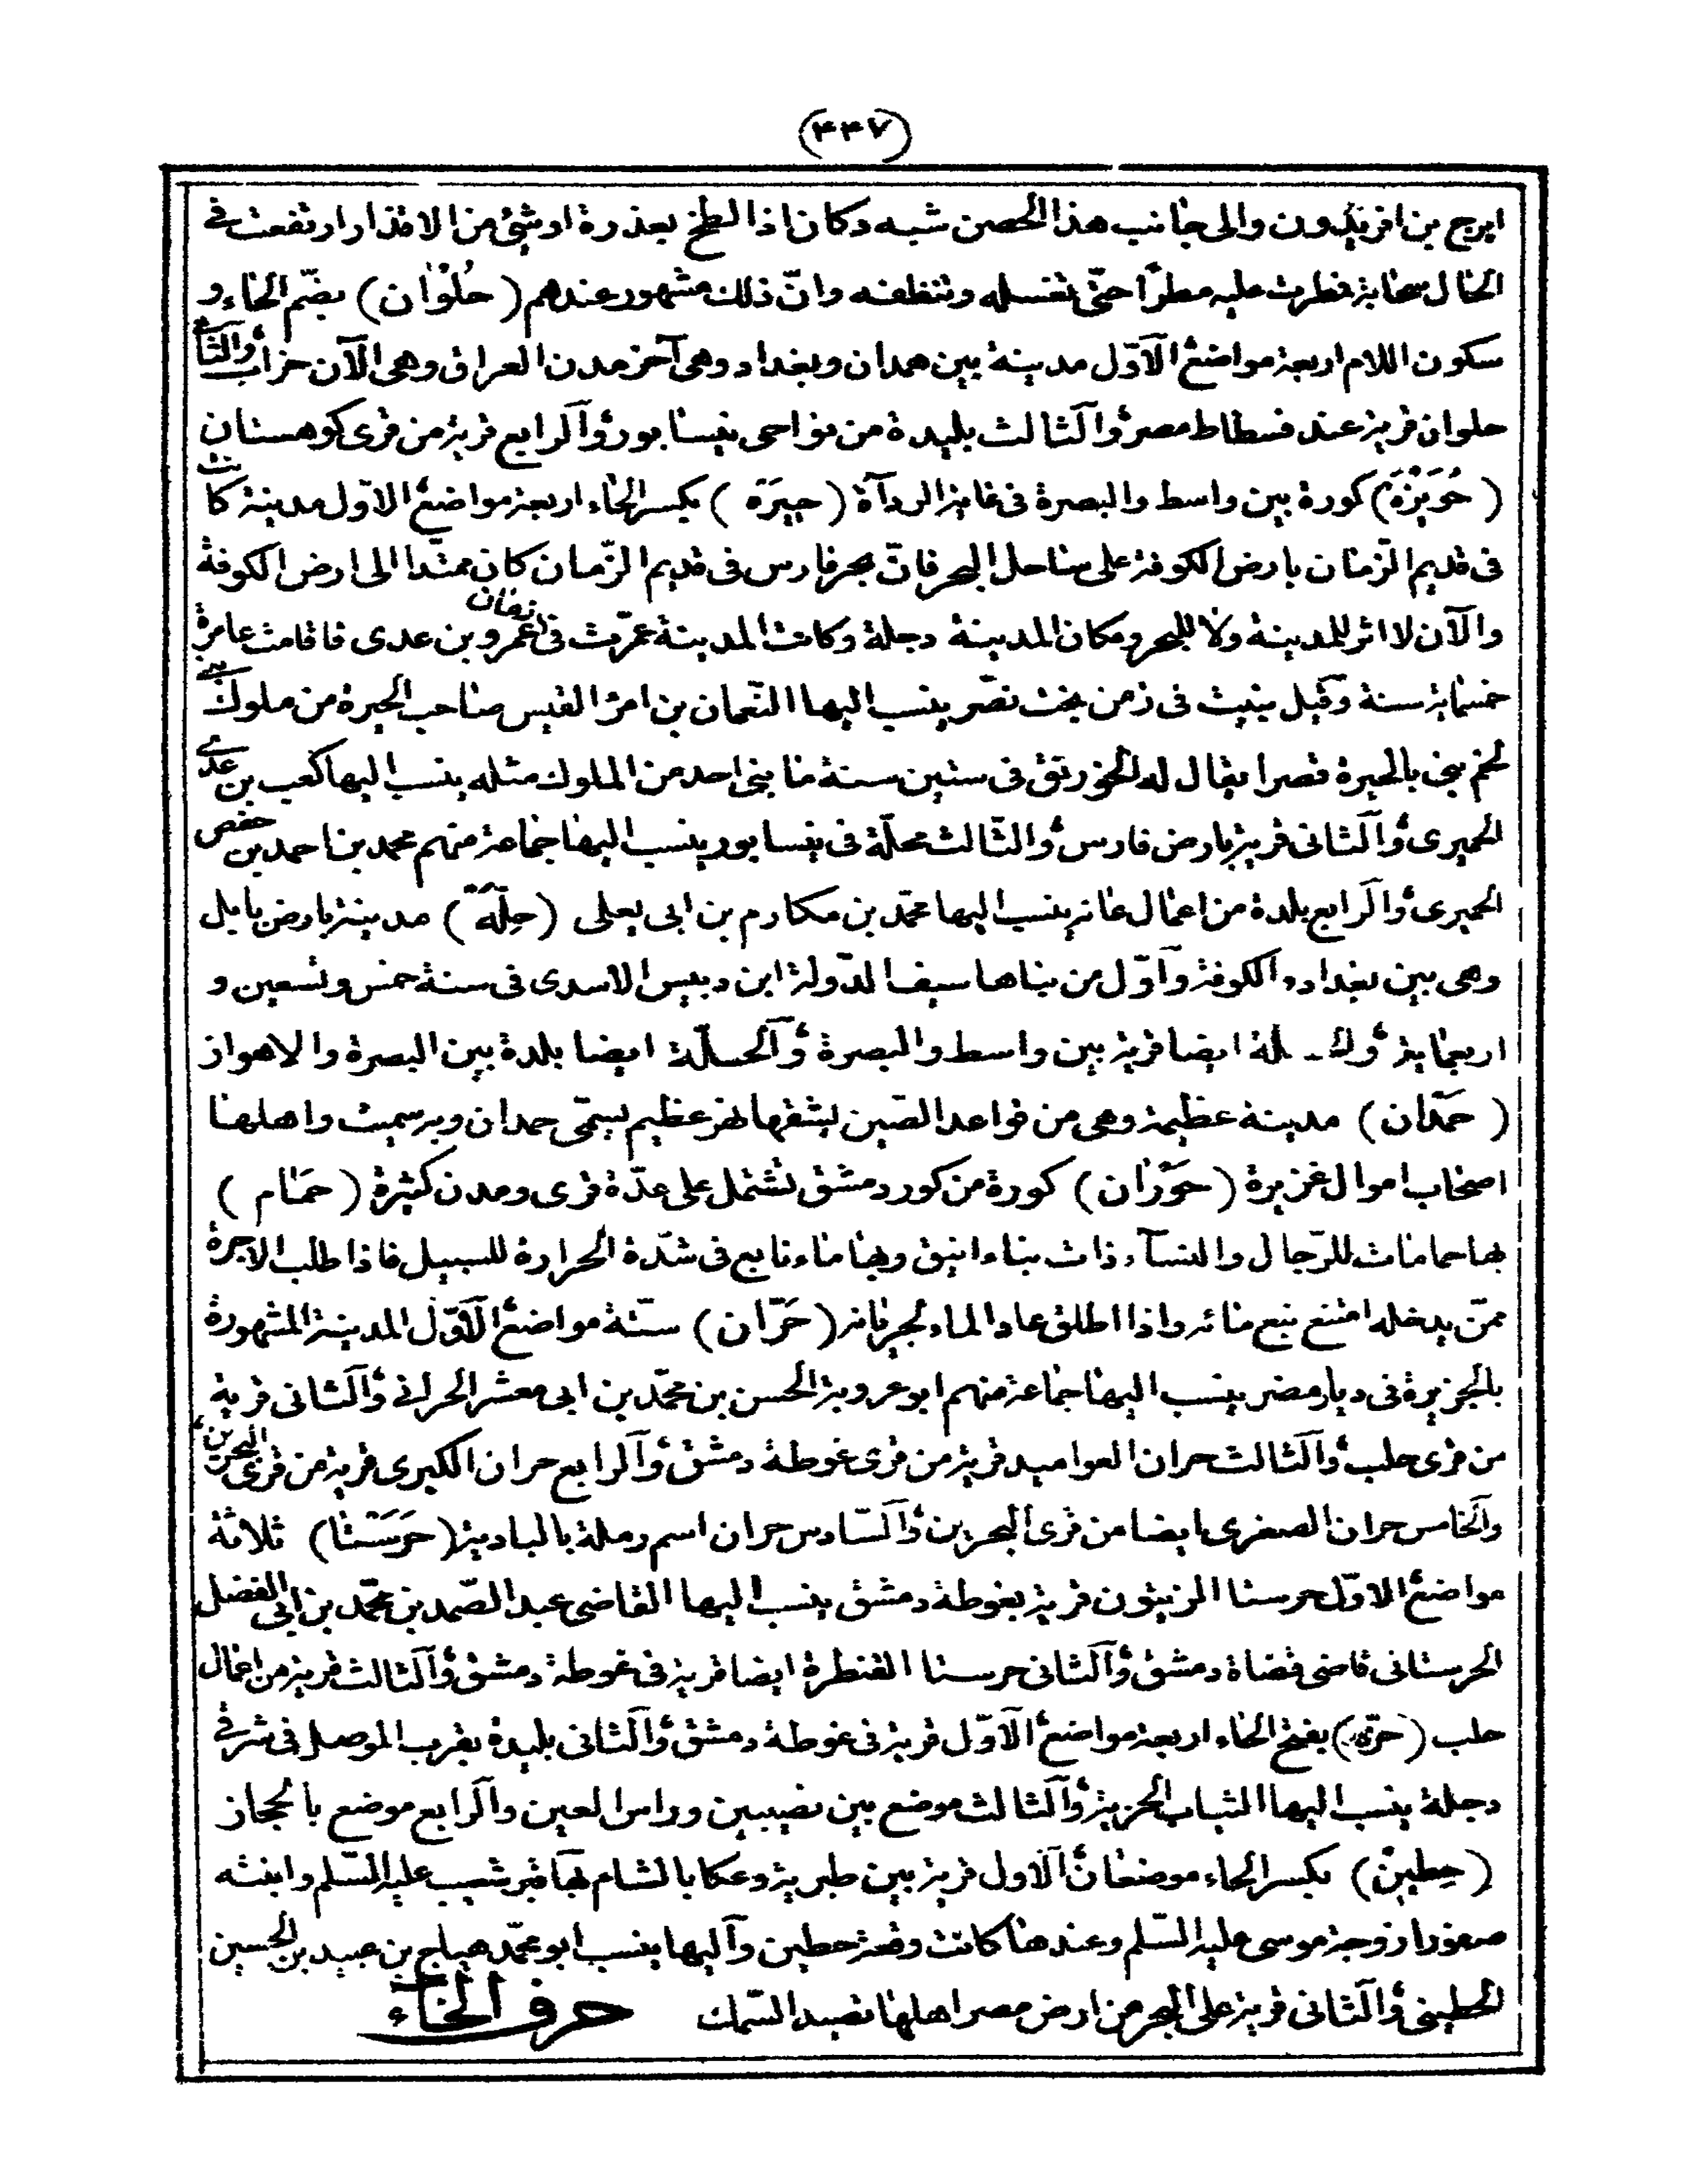 (٤٤٧)
ايرج بن افريدون والى جانب هذا الحصن شبه دكان اذا لطخ بعذرة او شئ من الاقذار ارتفعت فى
الحال سحابة فطرت عليه مطرا حتّى تغسله وتنظفه وانّ ذلك مشهور عندهم (حُلْوٰان) بضّم الحاء و
سكون اللام اربعة مواضع الاوّل مدينة بين همدان وبغداد وهى آخر مدن العراق وهى الآن خراب والثانى
حلوان قرية عند فسطاط مصر والثالث بليدة من نواحى نيسابور والرابع قرية من قرى كوهستان
(حُوَيْزَة) كورة بين واسط والبصرة فى غاية الردآة (حِيرَة) بكسر الحاء اربعة مواضع الاوّل مدينة كانت
فى قديم الزّمان بارض الكوفة على ساحل البحر فانّ بحر فارس فى قديم الزّمان كان ممتدا الى ارض الكوفة
والآن لا اثر للمدينة ولا للبحر ومكان المدينة دجلة وكانت المدينة عمّرت فى زمان عمرو بن عدى فاقامت عامرة
خمسمائة سنة وقيل بنيت فى زمن بخت نصّر ينسب اليها النّعمان بن امرؤ القيس صاحب الحيرة من ملوك بنى
لخم بنى بالحيرة قصرا يقال له الخورنق فى ستين سنة ما بنى احد من الملوك مثله ينسب اليها كعب بن عدى
الحيرى والثانى قرية بارض فارس والثالث محلّة فى نيسابور ينسب اليها جماعة منهم محمد بن احمد بن حفص
الحيرى والرابع بلدة من اعمال عانة ينسب اليها محمّد بن مكارم بن ابى يعلى (حِلَّة) مدينة بارض بابل
وهى بين بغداد والكوفة واوّل من بناها سيف الدّولة ابن دبيس الاسدى فى سنة خمس وتسعين و
اربعمائة لة ايضا قرية بين واسط والبصرة والحلّة ايضا بلدة بين البصرة والاهواز
(حَمْدان) مدينة عظيمة وهى من قواعد الصّين يشقها نهر عظيم يسمّى حمدان وبه سميت واهلها
اصحاب اموال غزيرة (حَوْرٰان) كورة من كور دمشق تشتمل على عدّة قرى ومدن كثيرة (حَمّام)
بها حمامات للرّجال والنسآء ذات بناء انيق وبها ماء نابع فى شدّة الحرارة للسبيل فاذا طلب الاجرة
ممّن يدخله امتنع نبع مائه واذا اطلق عاد الماء لجريانه (حَرّان) ستّة مواضع الاوّل المدينة المشهورة
بالجزيرة فى ديار مضر ينسب اليها جماعة منهم ابو عروبة الحسن بن محمّد بن ابى معشر الحرانى والثانى قرية
من قرى حلب والثالث حران العواميد قرية من قرى غوطة دمشق والرابع حران الكبرى قرية من قرى البحرين
والخامس حران الصغرى ايضا من قرى البحرين والسّادس حران اسم رملة بالبادية (حَرَسْتٰا) ثلاثة
مواضع الاوّل حرستا الزيتون قرية بغوطة دمشق ينسب اليها القاضى عبد الصّمد بن محمّد بن ابى الفضل
الحرستانى قاضى قضاة دمشق والثانى حرستا القنطرة ايضا قرية فى غوطة دمشق والثالث قرية من اعمال
حلب (حزّة) بفتح الحاء اربعة مواضع الاوّل قرية فى غوطة دمشق والثانى بليدة بقرب الموصل فى شرقى
دجلة ينسب اليها الثياب الحزية والثالث موضع بين نصيبين وراس العين والرابع موضع بالحجاز
(حِطين) بكسر الحاء موضعان الاول قرية بين طبرية وعكا بالشام بها قبر شعيب عليه السّلم وابنته
صفورا زوجة موسى عليه السّلم وعندها كانت وقعة حطين واليها ينسب ابو محمّد هياج بن عبيد بن الحسين
الحطينى والثانى قرية على البحر من ارض مصر اهلها تصيد السّمك حرف الخآء